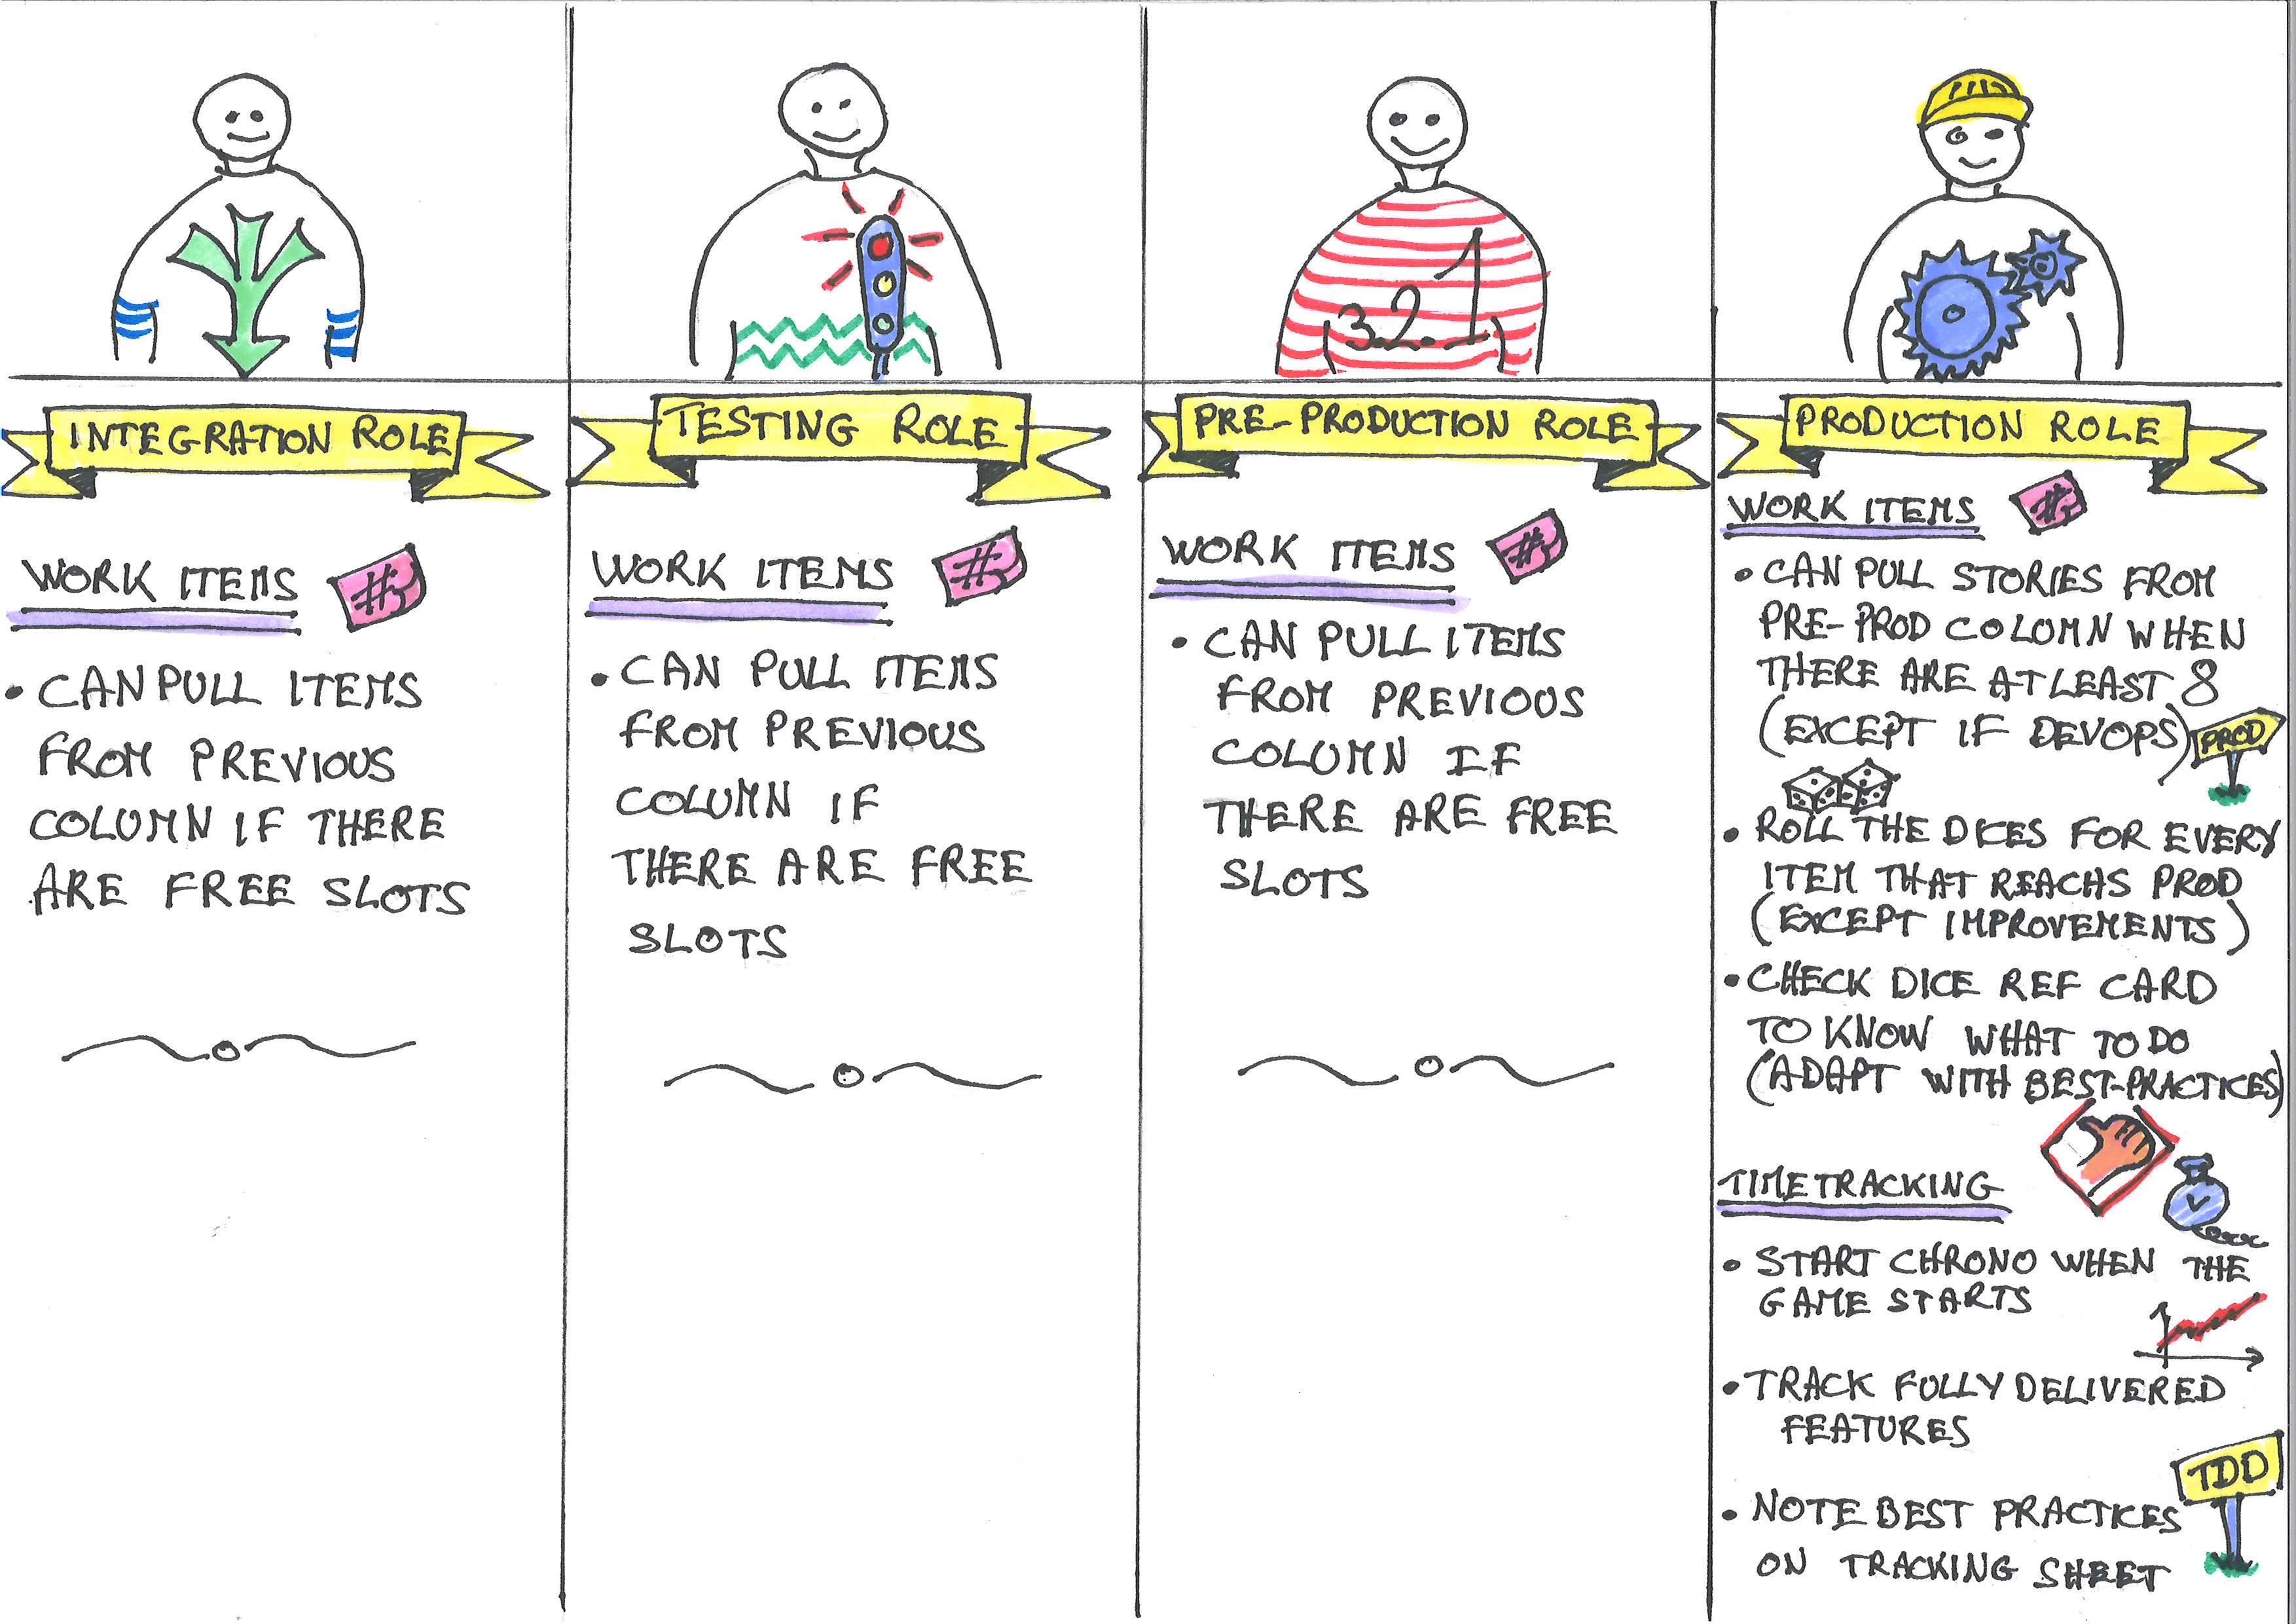 3.2.1
INTEGRATION ROLE
WORK ITEMS #
• CAN PULL ITEMS
FROM PREVIOUS
COLUMN IF THERE
ARE FREE SLOTS
TESTING ROLE
WORK ITEMS #
• CAN PULL ITEMS
FROM PREVIOUS
COLUMN IF
THERE ARE FREE
SLOTS
PRE-PRODUCTION ROLE
WORK ITEMS #
• CAN PULL ITEMS
FROM PREVIOUS
COLUMN IF
THERE ARE FREE
SLOTS
PRODUCTION ROLE
WORK ITEMS #
• CAN PULL STORIES FROM
PRE-PROD COLUMN WHEN
THERE ARE AT LEAST 8
(EXCEPT IF DEVOPS)
PROD
• ROLL THE DICES FOR EVERY
ITEM THAT REACHS PROD
(EXCEPT IMPROVEMENTS)
• CHECK DICE REF CARD
TO KNOW WHAT TO DO
(ADAPT WITH BEST-PRACTICES)
TIMETRACKING
• START CHRONO WHEN THE
GAME STARTS
• TRACK FULLY DELIVERED
FEATURES
TDD
• NOTE BEST PRACTICES
ON TRACKING SHEET